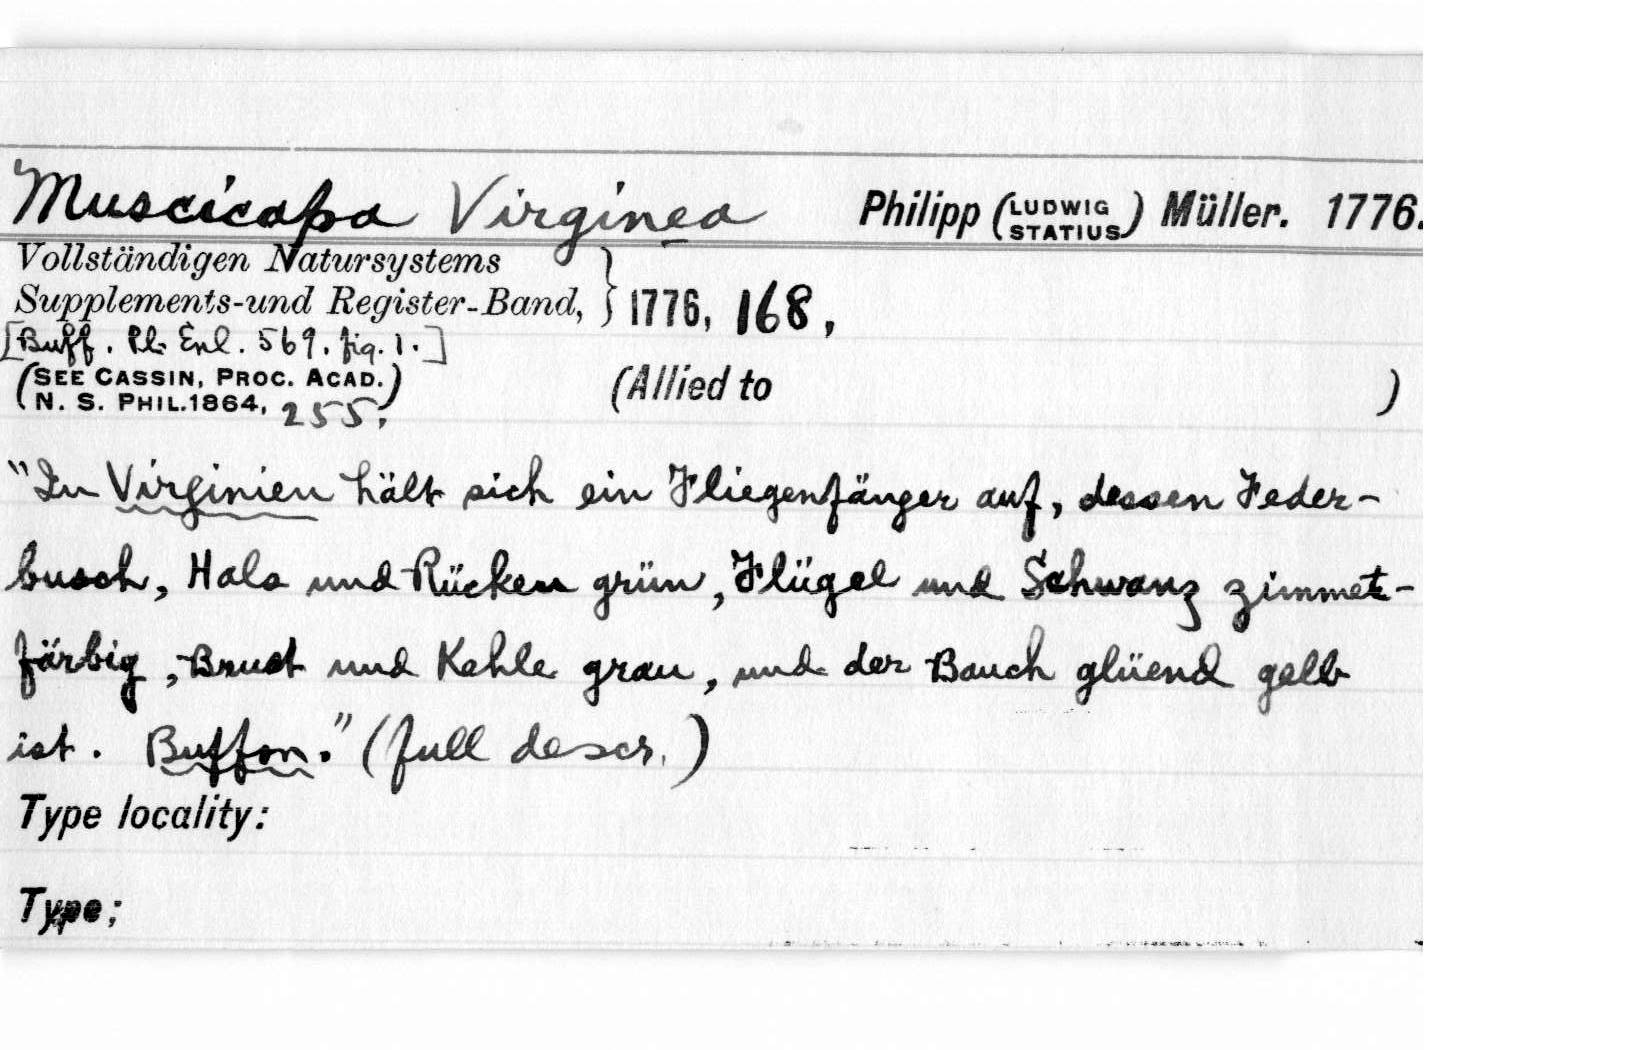 Muscicapa Virginea Philipp (LUDWIG STATIUS) Müller. 1776.
Vollständigen Natursystems
Supplements-und Register-Band, } 1776, 168,
[Buff. Pl. Enl. 569. fig. 1.]
(SEE CASSIN, PROC. ACAD.
N. S. PHIL. 1864, 255.) (Allied to )
"In Virginien hält sich ein Fliegenfänger auf, dessen Feder-
busch, Hals und Rücken grün, Flügel und Schwanz zimmet-
färbig, Brust und Kehle grau, und der Bauch glüend gelb
ist. Buffon." (full descr.)
Type locality:
Type;